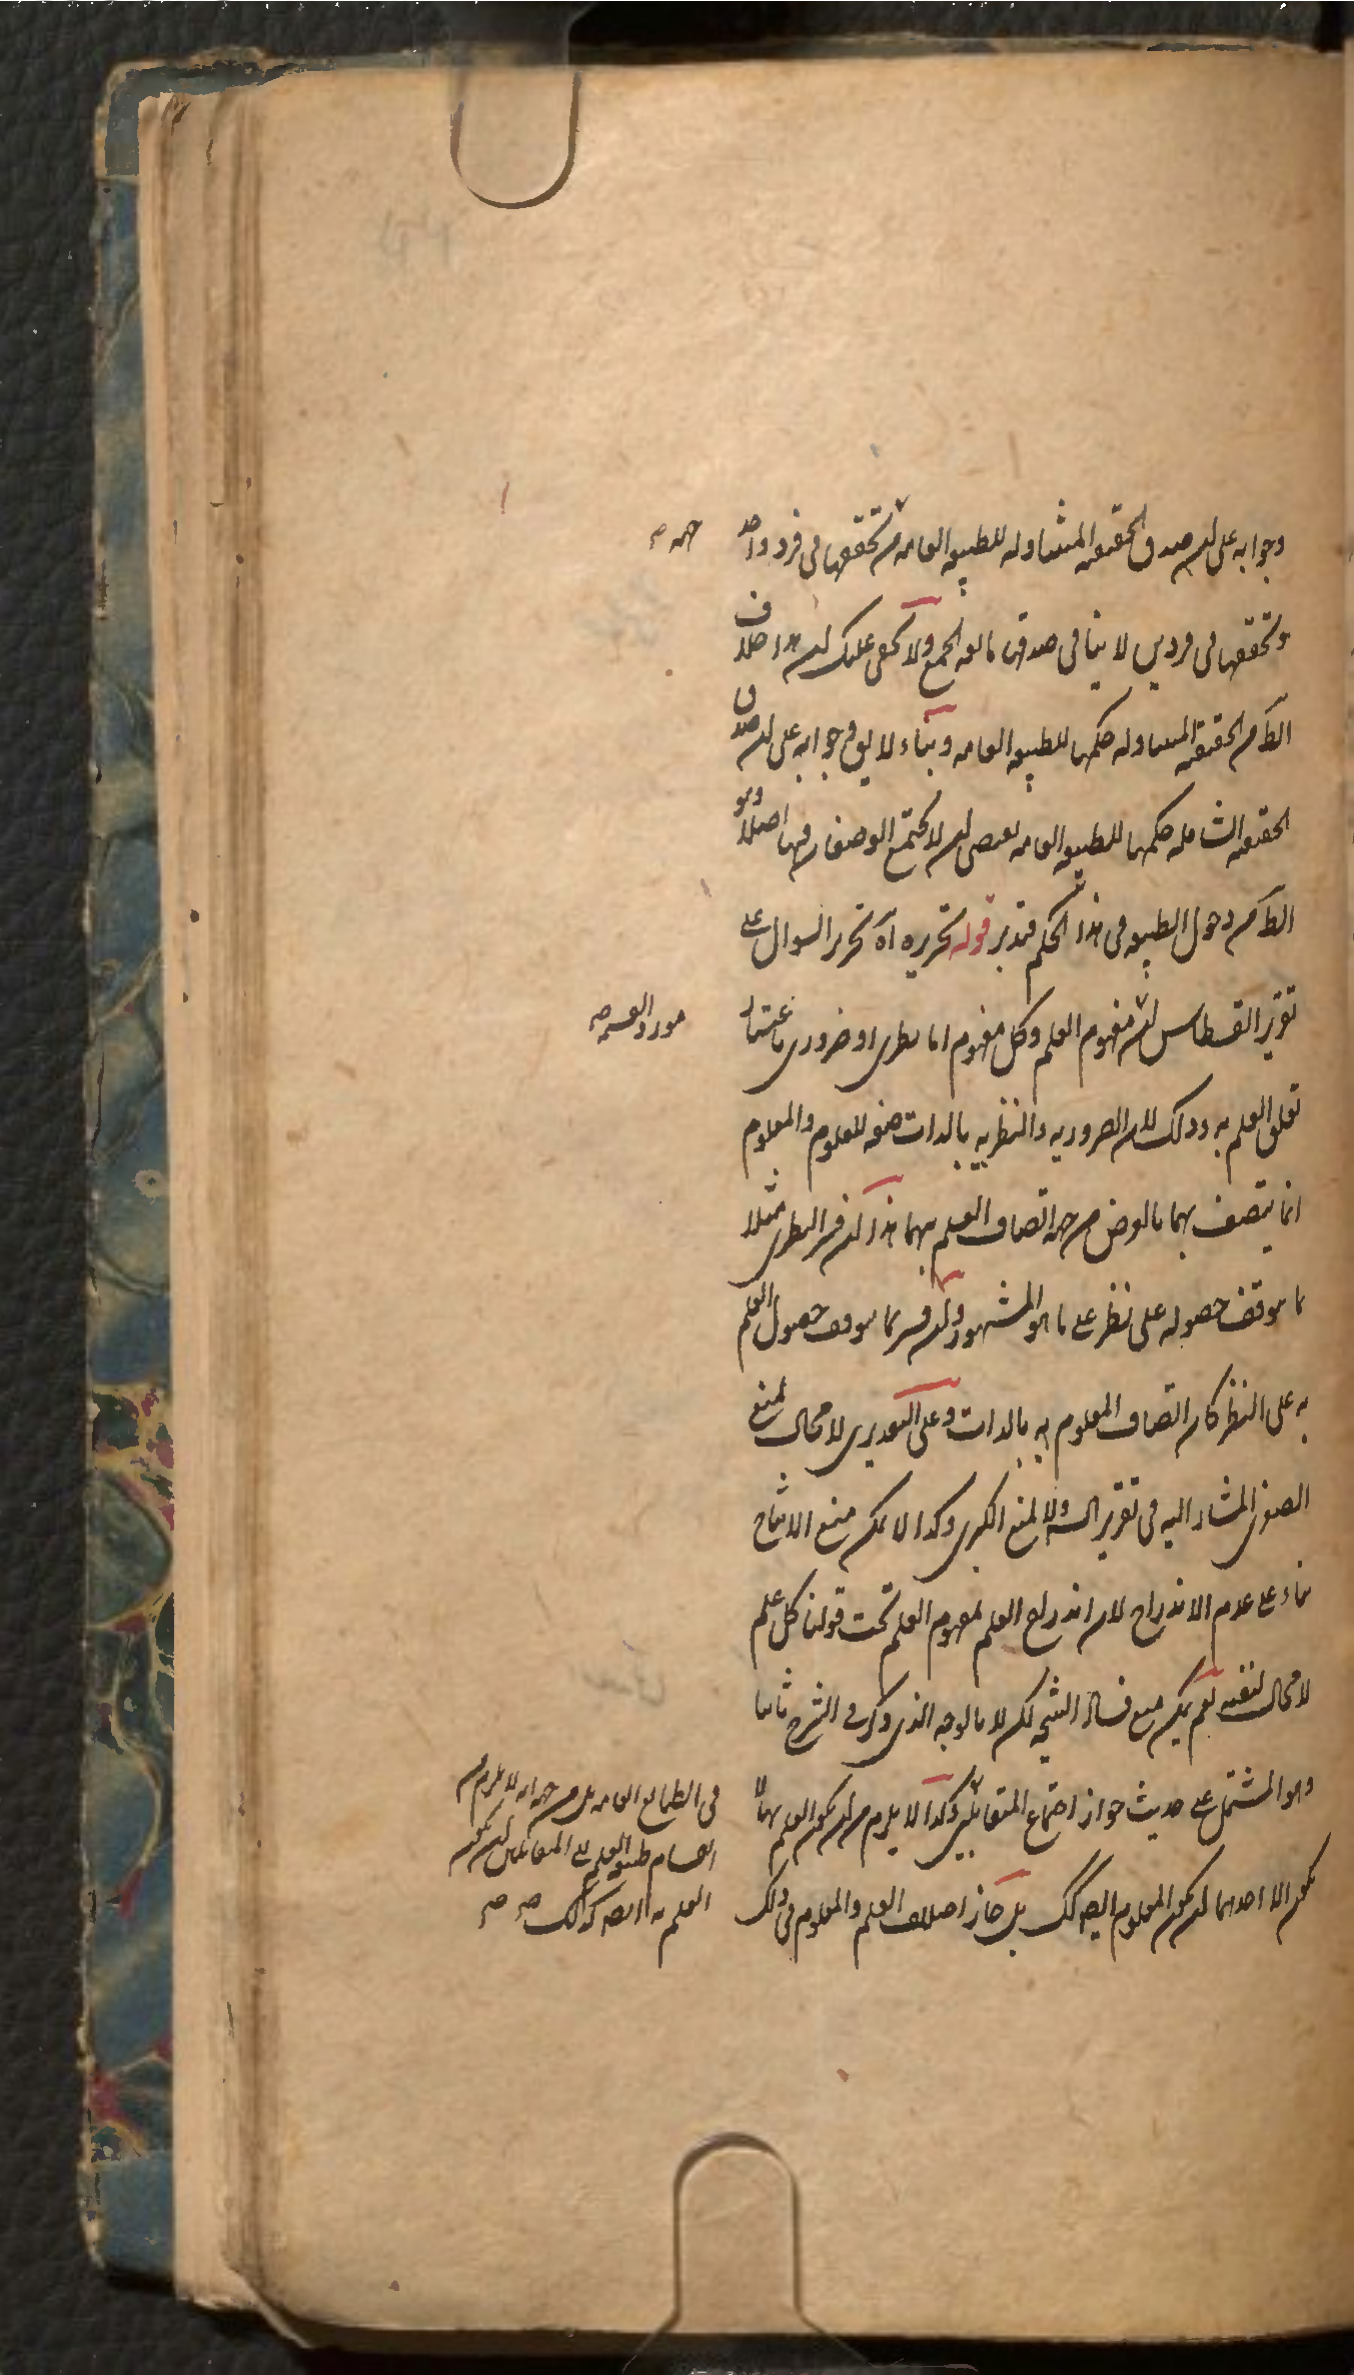 وجوابه على ان صدق الحقيقه المتناوله للطبيعه العامه من تحققها فى فرد واحد
وتحققها فى فردين لا ينافى صدقها مانعه الجمع ولا يخفى عليك ان هذا خلاف
الظ من الحقيقه المتناوله حكمها للطبيعه العامه وبناء لا يق وجوابه على ان صدق
الحقيقه الشامله حكمها للطبيعه العامه يقتضى ان لا يجتمع الوصفان فيها اصلا وهو
الظ من دخول الطبيعه فى هذا الحكم فتدبر قوله تحريره آه تحرير السوال على
تقرير القسطاس ان مفهوم العلم وكل مفهوم اما نظرى او ضرورى باعتبار
تعلق العلم به وذلك لان الضروريه والنظريه بالذات صفه للعلوم والمعلوم
انما يتصف بهما بالعرض من جهه اتصاف العلم بهما هذا ان فسر النظرى مثلا
بما يتوقف حصوله على نظر على ما هو المشهور وان فسر بما يتوقف حصول العلم
به على النظر كان اتصاف المعلوم به بالذات وعلى التقديرين لا مجال لمنع
الصغرى المشار اليه فى تقرير الش ولا لمنع الكبرى وكذا لا يمكن منع الانتاج
بناء على عدم الاندراج لان اندراج العلم لمفهوم العلم تحت قولنا كل علم
لا مجال لنفيه نعم يمكن منع فساد النتيجه لكن لا بالوجه الذى ذكر فى الشرح ثانيا
وهو المشتمل على حديث جواز اجتماع المتقابلين وكذا لا يلزم من ان يكون العلم بهما لا
يكون الا احدهما ان يكون المعلوم ايضه كك بل جاز اختلاف العلم والمعلوم فى ذلك
جهه صح
مورد القسمه صح
فى الطبايع العامه بل من جهه انه لا يلزم من
انقسام طبيعه العلم الى المتقابلين ان يكون
العلم به ايضه كذلك صح صح